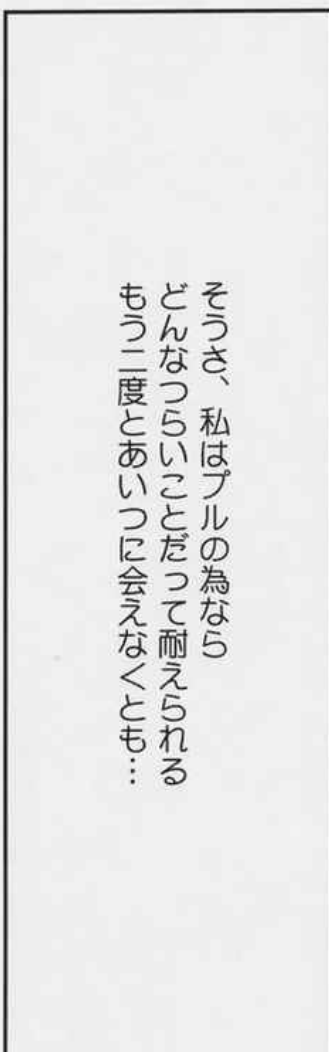 そうさ、私はプルの為なら
どんなつらいことだって耐えられる
もう二度とあいつに会えなくとも…